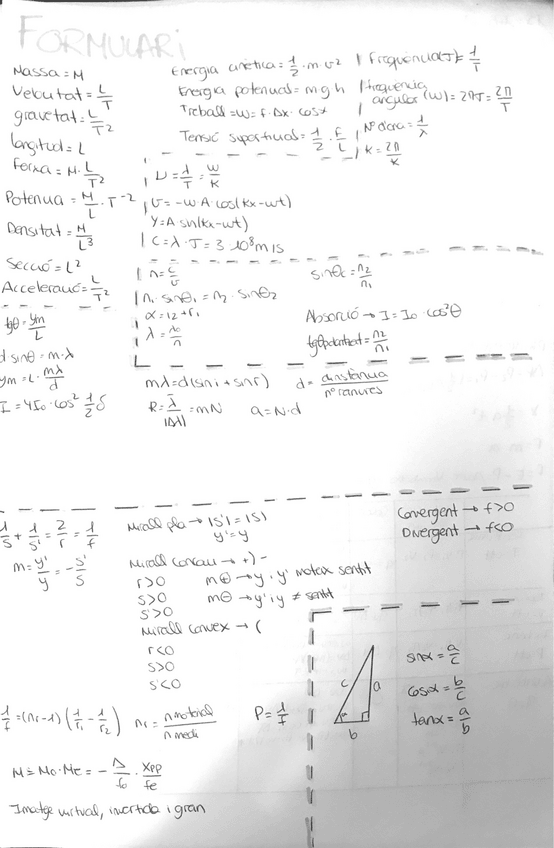 FORMULARI
Massa = M
Velocitat = L/T
gravetat = L/T²
longitud = L
Força = M · L/T²
Potencia = M/L · T⁻²
Densitat = M/L³
Secció = L²
Acceleració = L/T²
Energia cinètica = 1/2 · m · v²
Energia potencial = m g h
Treball = W = F · Δx · cosα
Tensió superficial = 1/2 · F/L
Freqüència (f) = 1/T
Freqüència angular (ω) = 2πf = 2π/T
Nº d'ona = 1/λ
k = 2π/k
v = λ/T = w/k
v = -w · A · cos(kx - wt)
y = A · sin(kx - wt)
C = λ · f = 3 · 10⁸ m/s
n = c/v
n₁ · sinθ₁ = n₂ · sinθ₂
α = i₂ + r₁
λ = λ₀/n
sinθc = n₂/n₁
Absorció → I = I₀ · cos²θ
= n₂/n₁
tgθ = ym/L
d sinθ = m · λ
ym = L · mλ/d
I = 4I₀ · cos² 1/2 δ
mλ = d(sin i + sin r)
d = distància/nº ranures
R = λ/|Δλ| = mN
a = N · d
1/s + 1/s' = 2/r = 1/f
m = y'/y = - s'/s
Mirall pla → |s'| = |s|
y' = y
Mirall concau → +) -
r>0
s>0
s'>0
m⊕ → y · y' mateix sentit
m⊖ → y' i y ≠ sentit
Mirall convex → (
r<0
s>0
s'<0
Convergent → f>0
Divergent → f<0
1/f = (nr - 1) (1/r₁ - 1/r₂)
nr = n material/n medi
P = 1/f
M = Mo · Me = - Δ/fo · Xpp/fe
Imatge virtual, invertida i gran
c
a
α
b
sinα = a/c
cosα = b/c
tanα = a/b